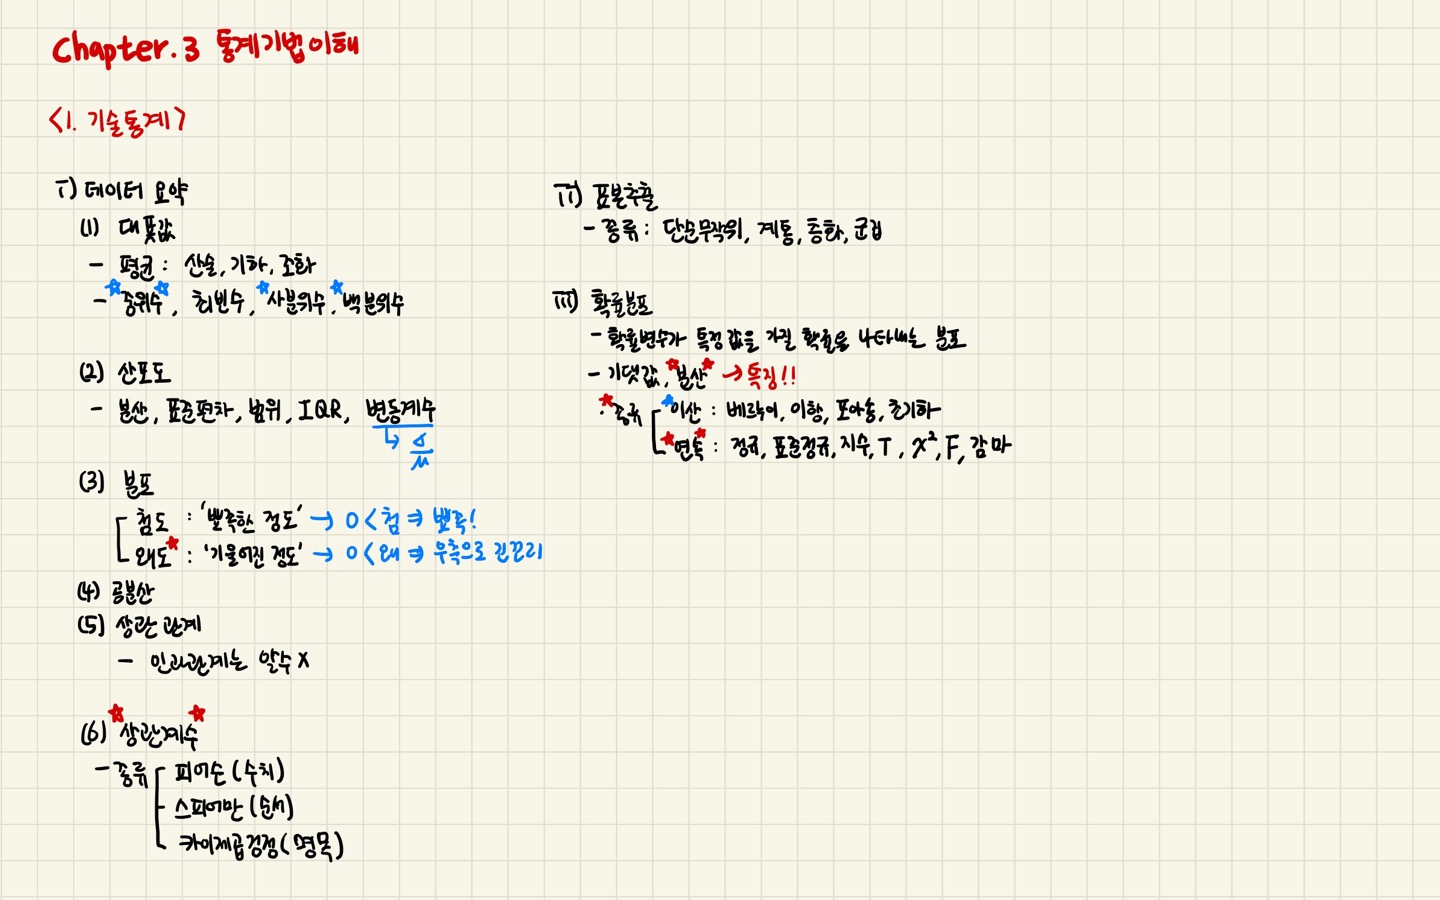 Chapter.3 통계기법이해
<1. 기술통계>
I) 데이터 요약
(1) 대푯값
- 평균 : 산술, 기하, 조화
- 중위수, 최빈수, 사분위수, 백분위수
(2) 산포도
- 분산, 표준편차, 범위, IQR, 변동계수
↳ σ/μ
(3) 분포
첨도 : '뾰족한 정도' → 0 < 첨 ⇒ 뾰족!
왜도 : '기울어진 정도' → 0 < 왜 ⇒ 우측으로 긴꼬리
(4) 공분산
(5) 상관관계
- 인과관계는 알수 X
(6) 상관계수
- 종류 피어슨 (수치)
스피어만 (순서)
카이제곱검정 (명목)
II) 표본추출
- 종류 : 단순무작위, 계통, 층화, 군집
III) 확률분포
- 확률변수가 특정값을 가질 확률을 나타내는 분포
- 기댓값, 분산 → 특징!!
· 종류 이산 : 베르누이, 이항, 포아송, 초기하
연속 : 정규, 표준정규, 지수, T, χ², F, 감마